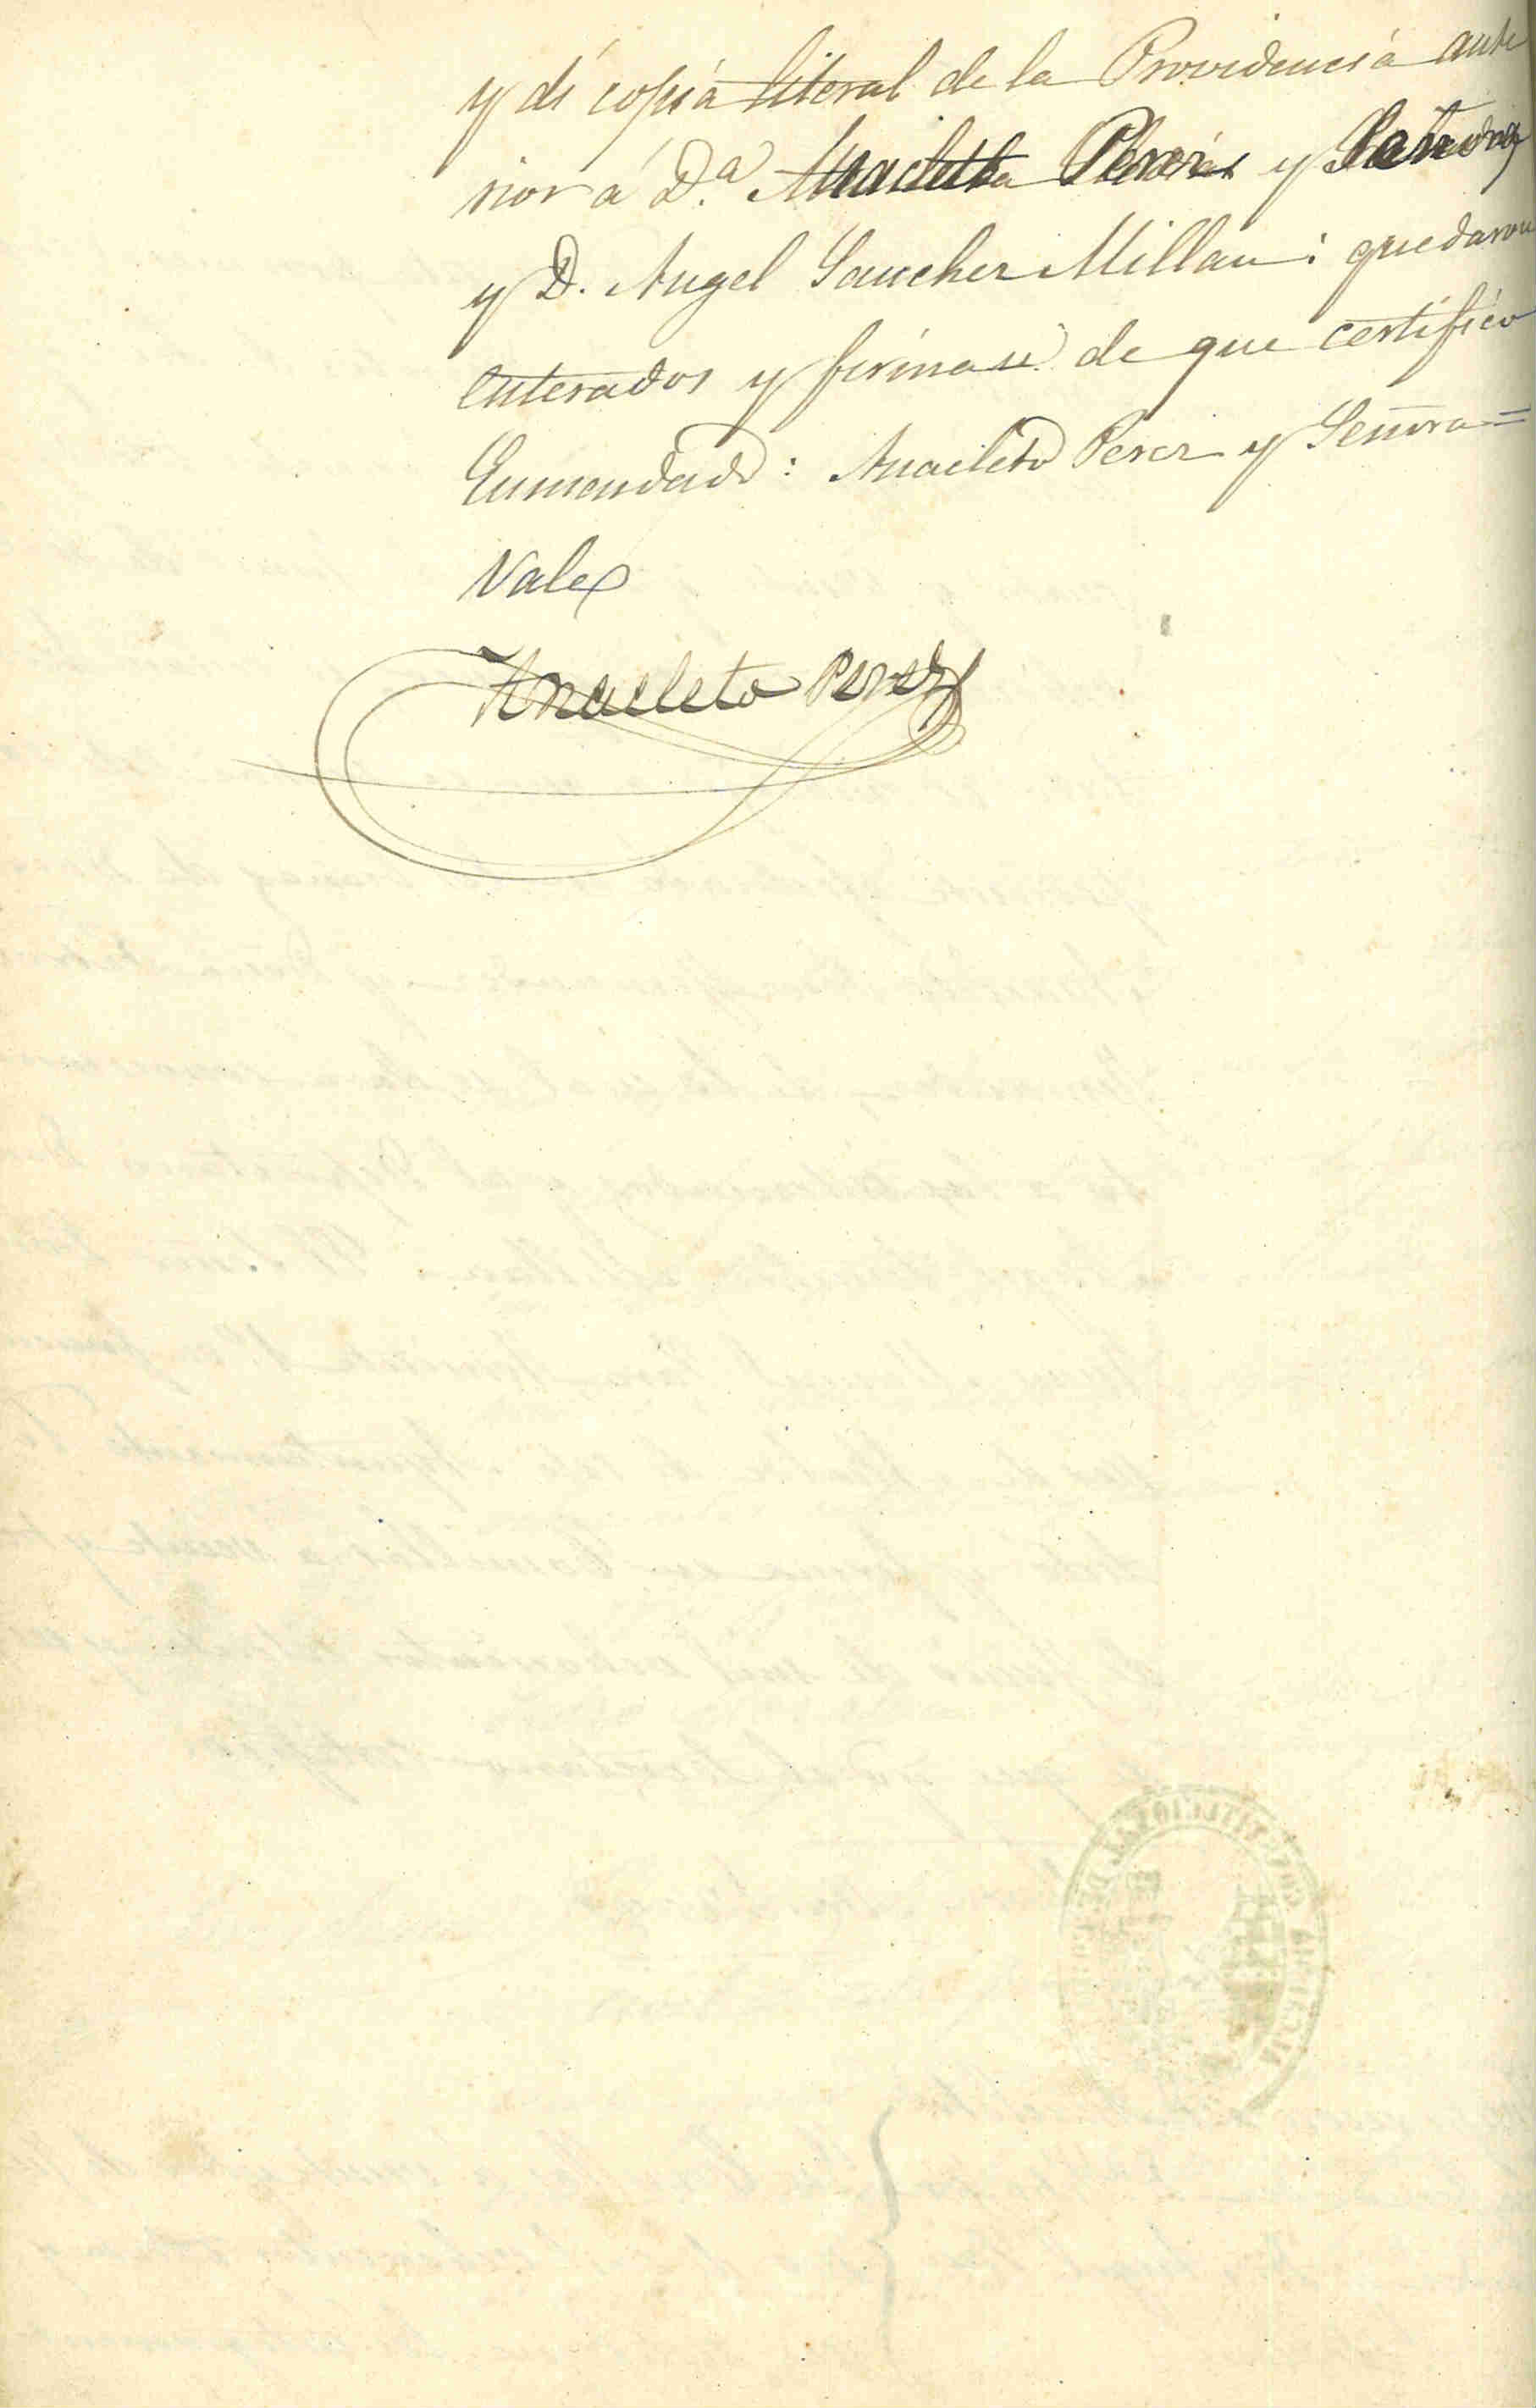 y di copia literal de la Providencia ante
rior a D.ª Anacleto Perez y Señora
y D. Angel Sanchez Millan: quedaron
enterados y firma de que certifico
Enmendado: Anacleto Perez y Señora =
Vale
Anacleto Perez